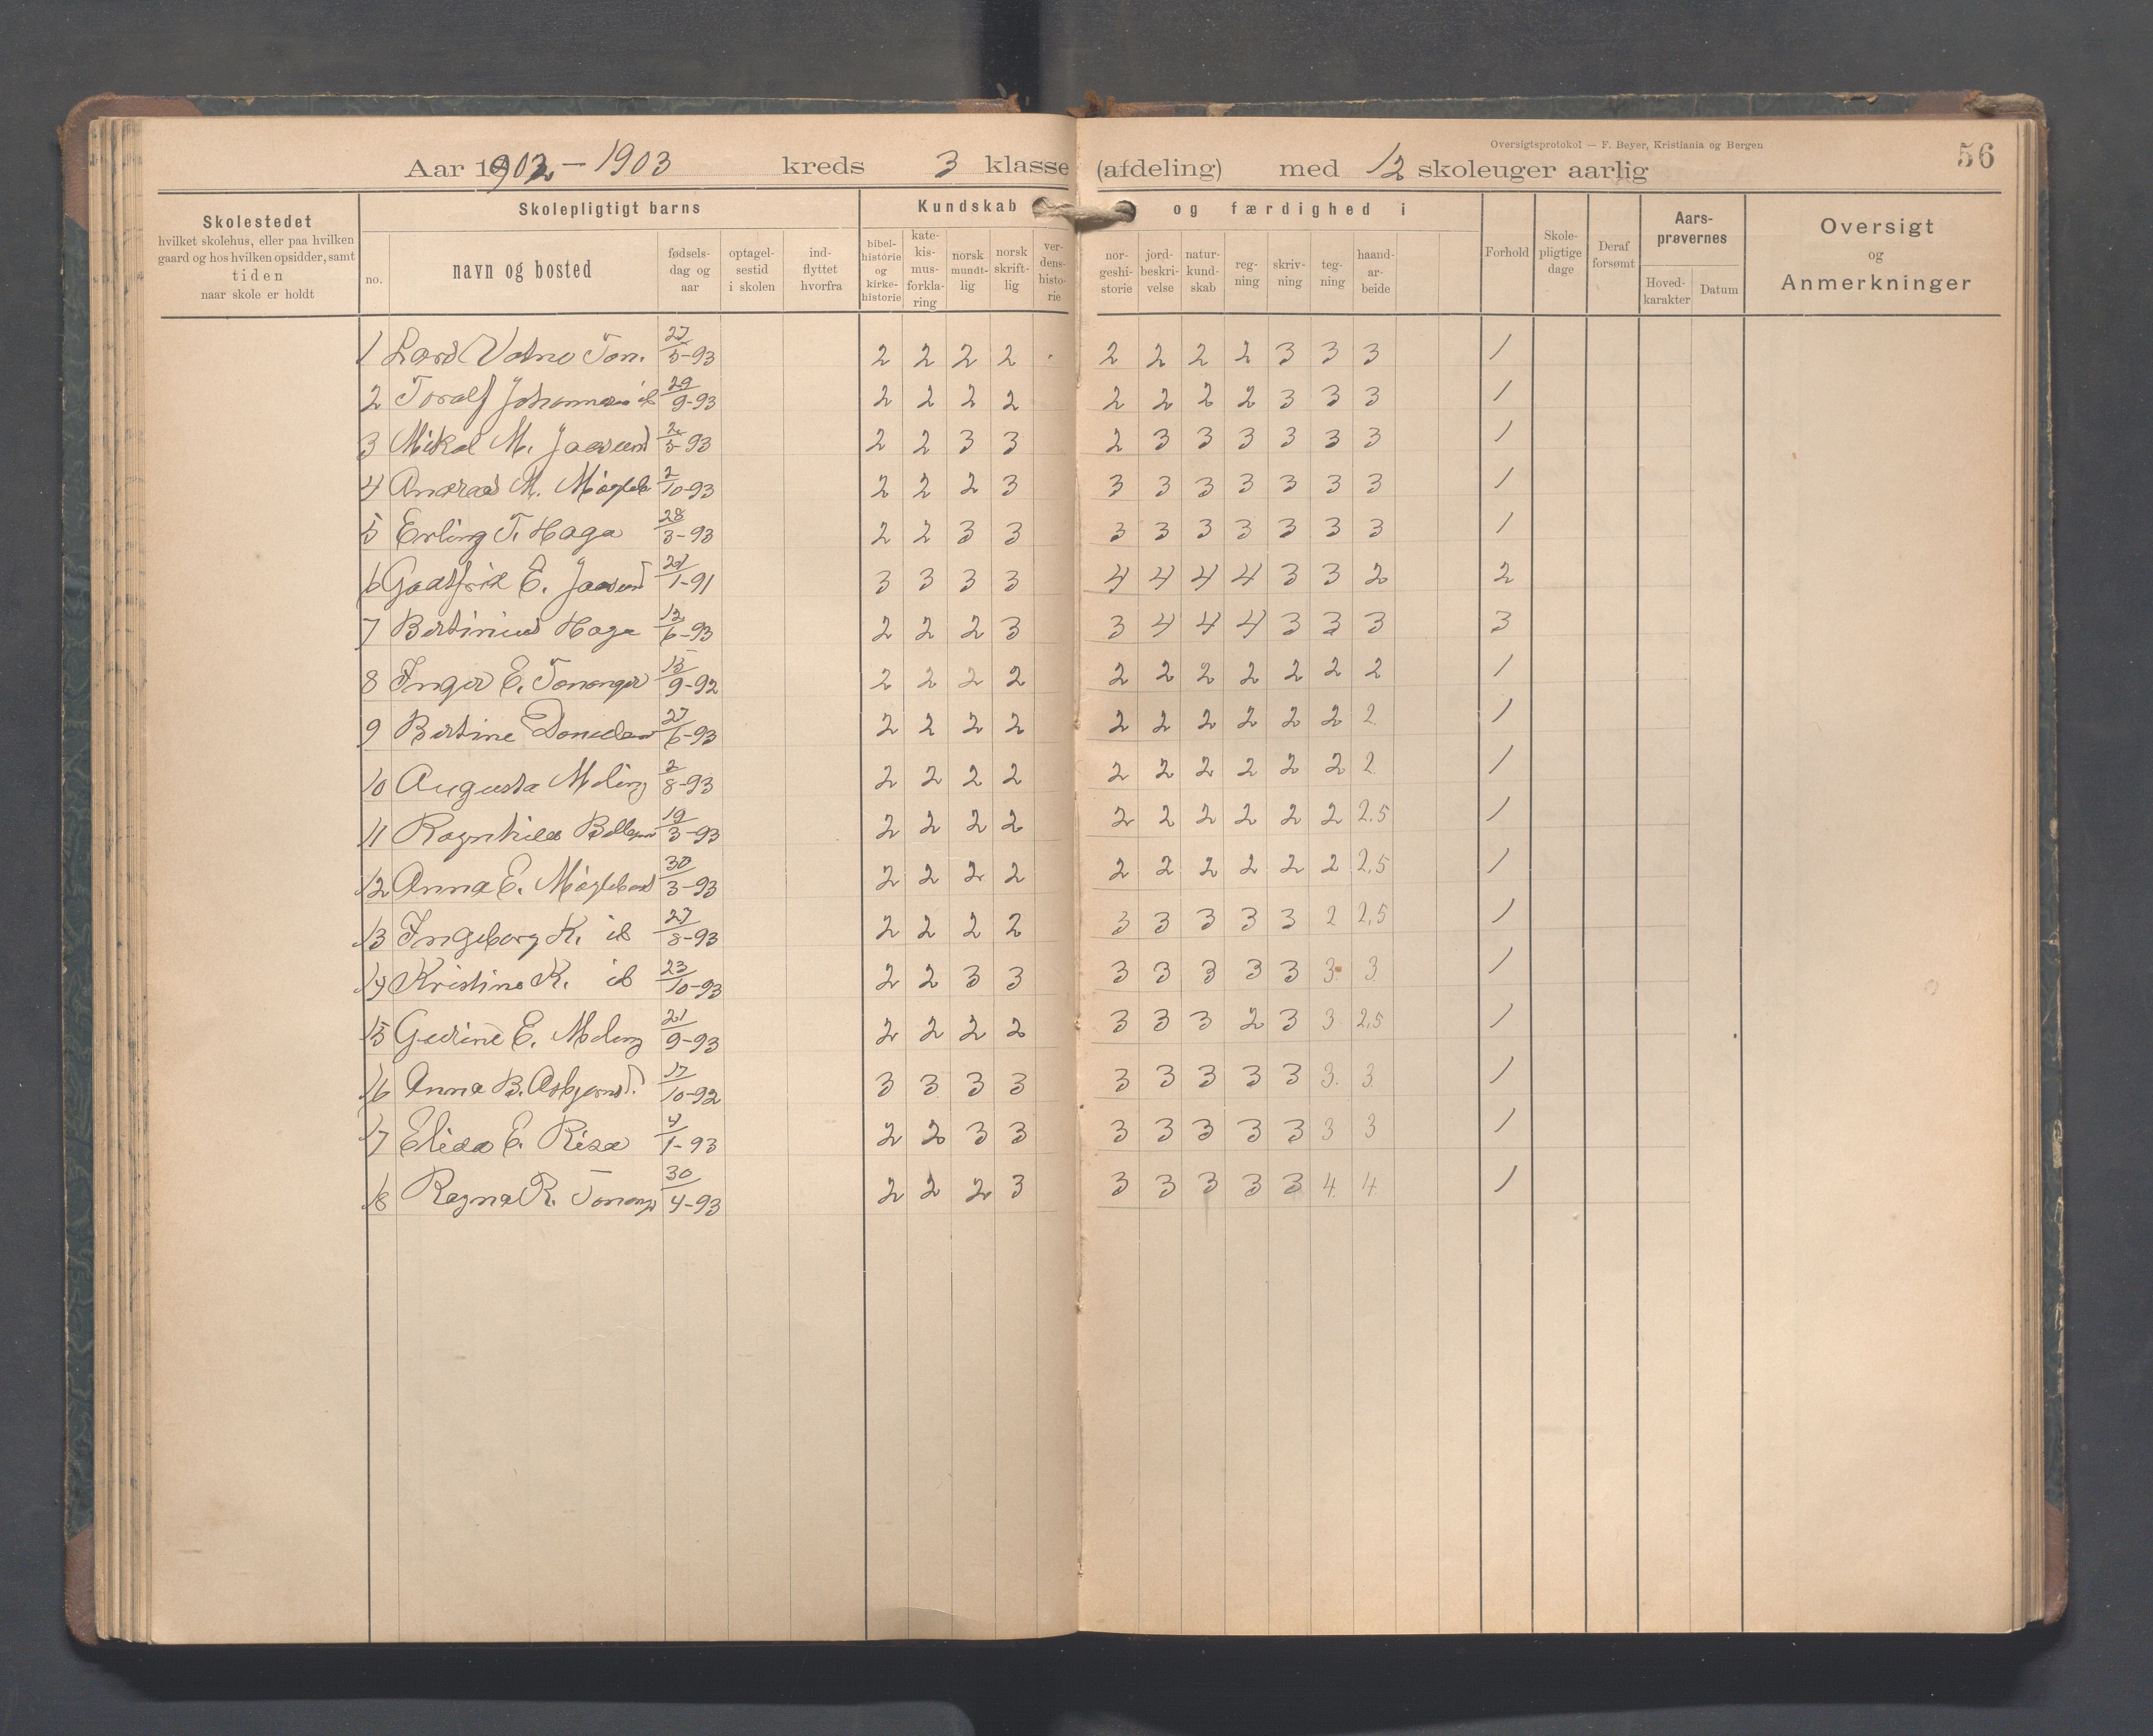 Oversigtsprotokol — F. Beyer, Kristiania og Bergen
56
Aar 1902 – 1903 kreds 3 klasse (afdeling) med 12 skoleuger aarlig
Skolestedet hvilket skolehus, eller paa hvilken gaard og hos hvilken opsidder, samt tiden naar skole er holdt
Skolepligtigt barns
no. navn og bosted fødsels-dag og aar optagel-sestid i skolen ind-flyttet hvorfra
Kundskab og færdighed i
bibel-historie og kirke-historie kate-kis-mus-forkla-ring norsk mundt-lig norsk skrift-lig ver-dens-histo-rie nor-geshi-storie jord-beskri-velse natur-kund-skab reg-ning skriv-ning teg-ning haand-ar-beide
Forhold Skole-pligtige dage Deraf forsømt Aars-prøvernes Hoved-karakter Datum
Oversigt og Anmerkninger
1 Lars Ton. 27/5-93 2 2 2 2 . 2 2 2 2 3 3 3 1
2 Toralf Johannesen ib 29/9-93 2 2 2 2 2 2 2 2 3 3 3 1
3 Mikal M. Jaasund 2/5-93 2 2 3 3 2 3 3 3 3 3 3 1
4 Andreas M. 2/10-93 2 2 2 3 3 3 3 3 3 3 3 1
5 Erling T. Haga 28/3-93 2 2 3 3 3 3 3 3 3 3 3 1
6 Godtfrid E. Jaasund /1-91 3 3 3 3 4 4 4 4 3 3 2 2
7 Bertinius Haga 12/6-93 2 2 2 3 3 4 4 4 3 3 3 3
8 Inger E. Tananger 15/9-92 2 2 2 2 2 2 2 2 2 2 2 1
9 Bertine 27/6-93 2 2 2 2 2 2 2 2 2 2 2 1
10 Augusta Meling 2/8-93 2 2 2 2 2 2 2 2 2 2 2 1
11 Ragnhild 19/3-93 2 2 2 2 2 2 2 2 2 2 2.5 1
12 Anna E. 30/3-93 2 2 2 2 2 2 2 2 2 2 2.5 1
13 Ingeborg K. ib 27/8-93 2 2 2 2 3 3 3 3 3 2 2.5 1
14 Kristine K. ib 23/10-93 2 2 3 3 3 3 3 3 3 3 3 1
15 Gurine E. Meling 21/9-93 2 2 2 2 3 3 3 2 3 3 2.5 1
16 Anna B. Asbjørnsd. 17/10-92 3 3 3 3 3 3 3 3 3 3 3 1
17 Elisa E. Risa 4/1-93 2 2 3 3 3 3 3 3 3 3 3 1
18 Ragna R. Tanang 30/4-93 2 2 2 3 3 3 3 3 3 4 4 1